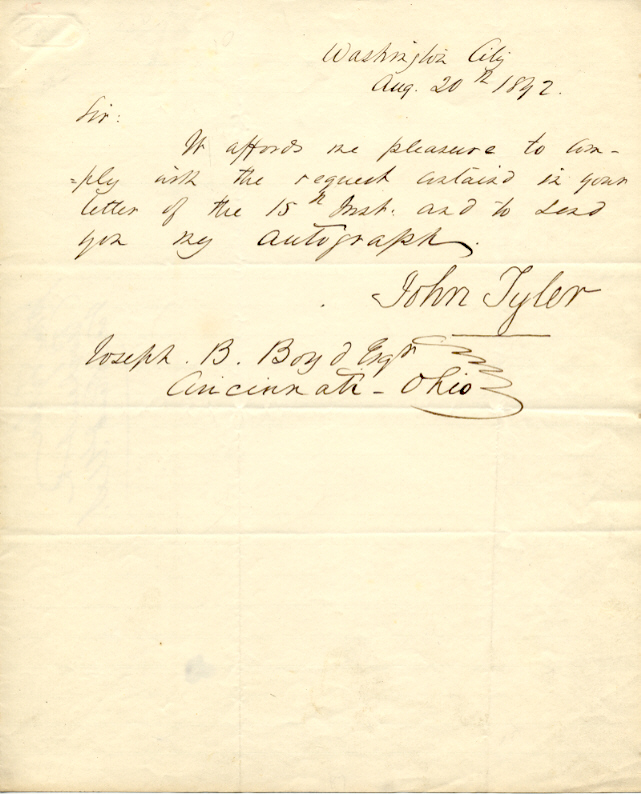 Washington City
Aug. 20th 1842.
Sir:
It affords me pleasure to com-
=ply with the request containd in your
letter of the 15th Inst. and to send
you my autograph.
John Tyler
Joseph. B. Boyd Esqr
Cincinnati - Ohio